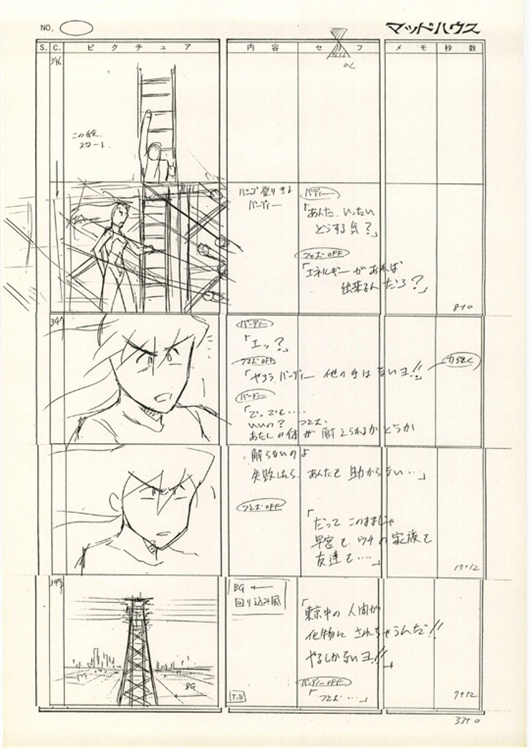 NO.
マッドハウス
S. C. ピクチュア 内容 セリフ メモ 秒数
346
この絵
スタート
ハシゴ登りする
バーディー
バーディー
「あんた、いったい
どうする気?」
つとむOFF
「エネルギーがあれば
出来るんだろ?」
8+0
347
バーディー
「エッ?」
つとむOFF
「やろうバーディー 他の手はないヨ!!」
力強く
バーディー
「でっでも‥‥
いいの? つとむ
あたしの体が耐えられるかどうか
解らないのよ
失敗したら、あんたも助からない…」
つとむOFF
「だってこのままじゃ
早宮もウチの家族も
友達も‥‥」
17+12
BG
回り込み風
BG
「東京中の人間が
化物にされちゃうんだ!!
やるしかないヨ!!」
バーディーOFF
「つとむ…」
T.B
7+12